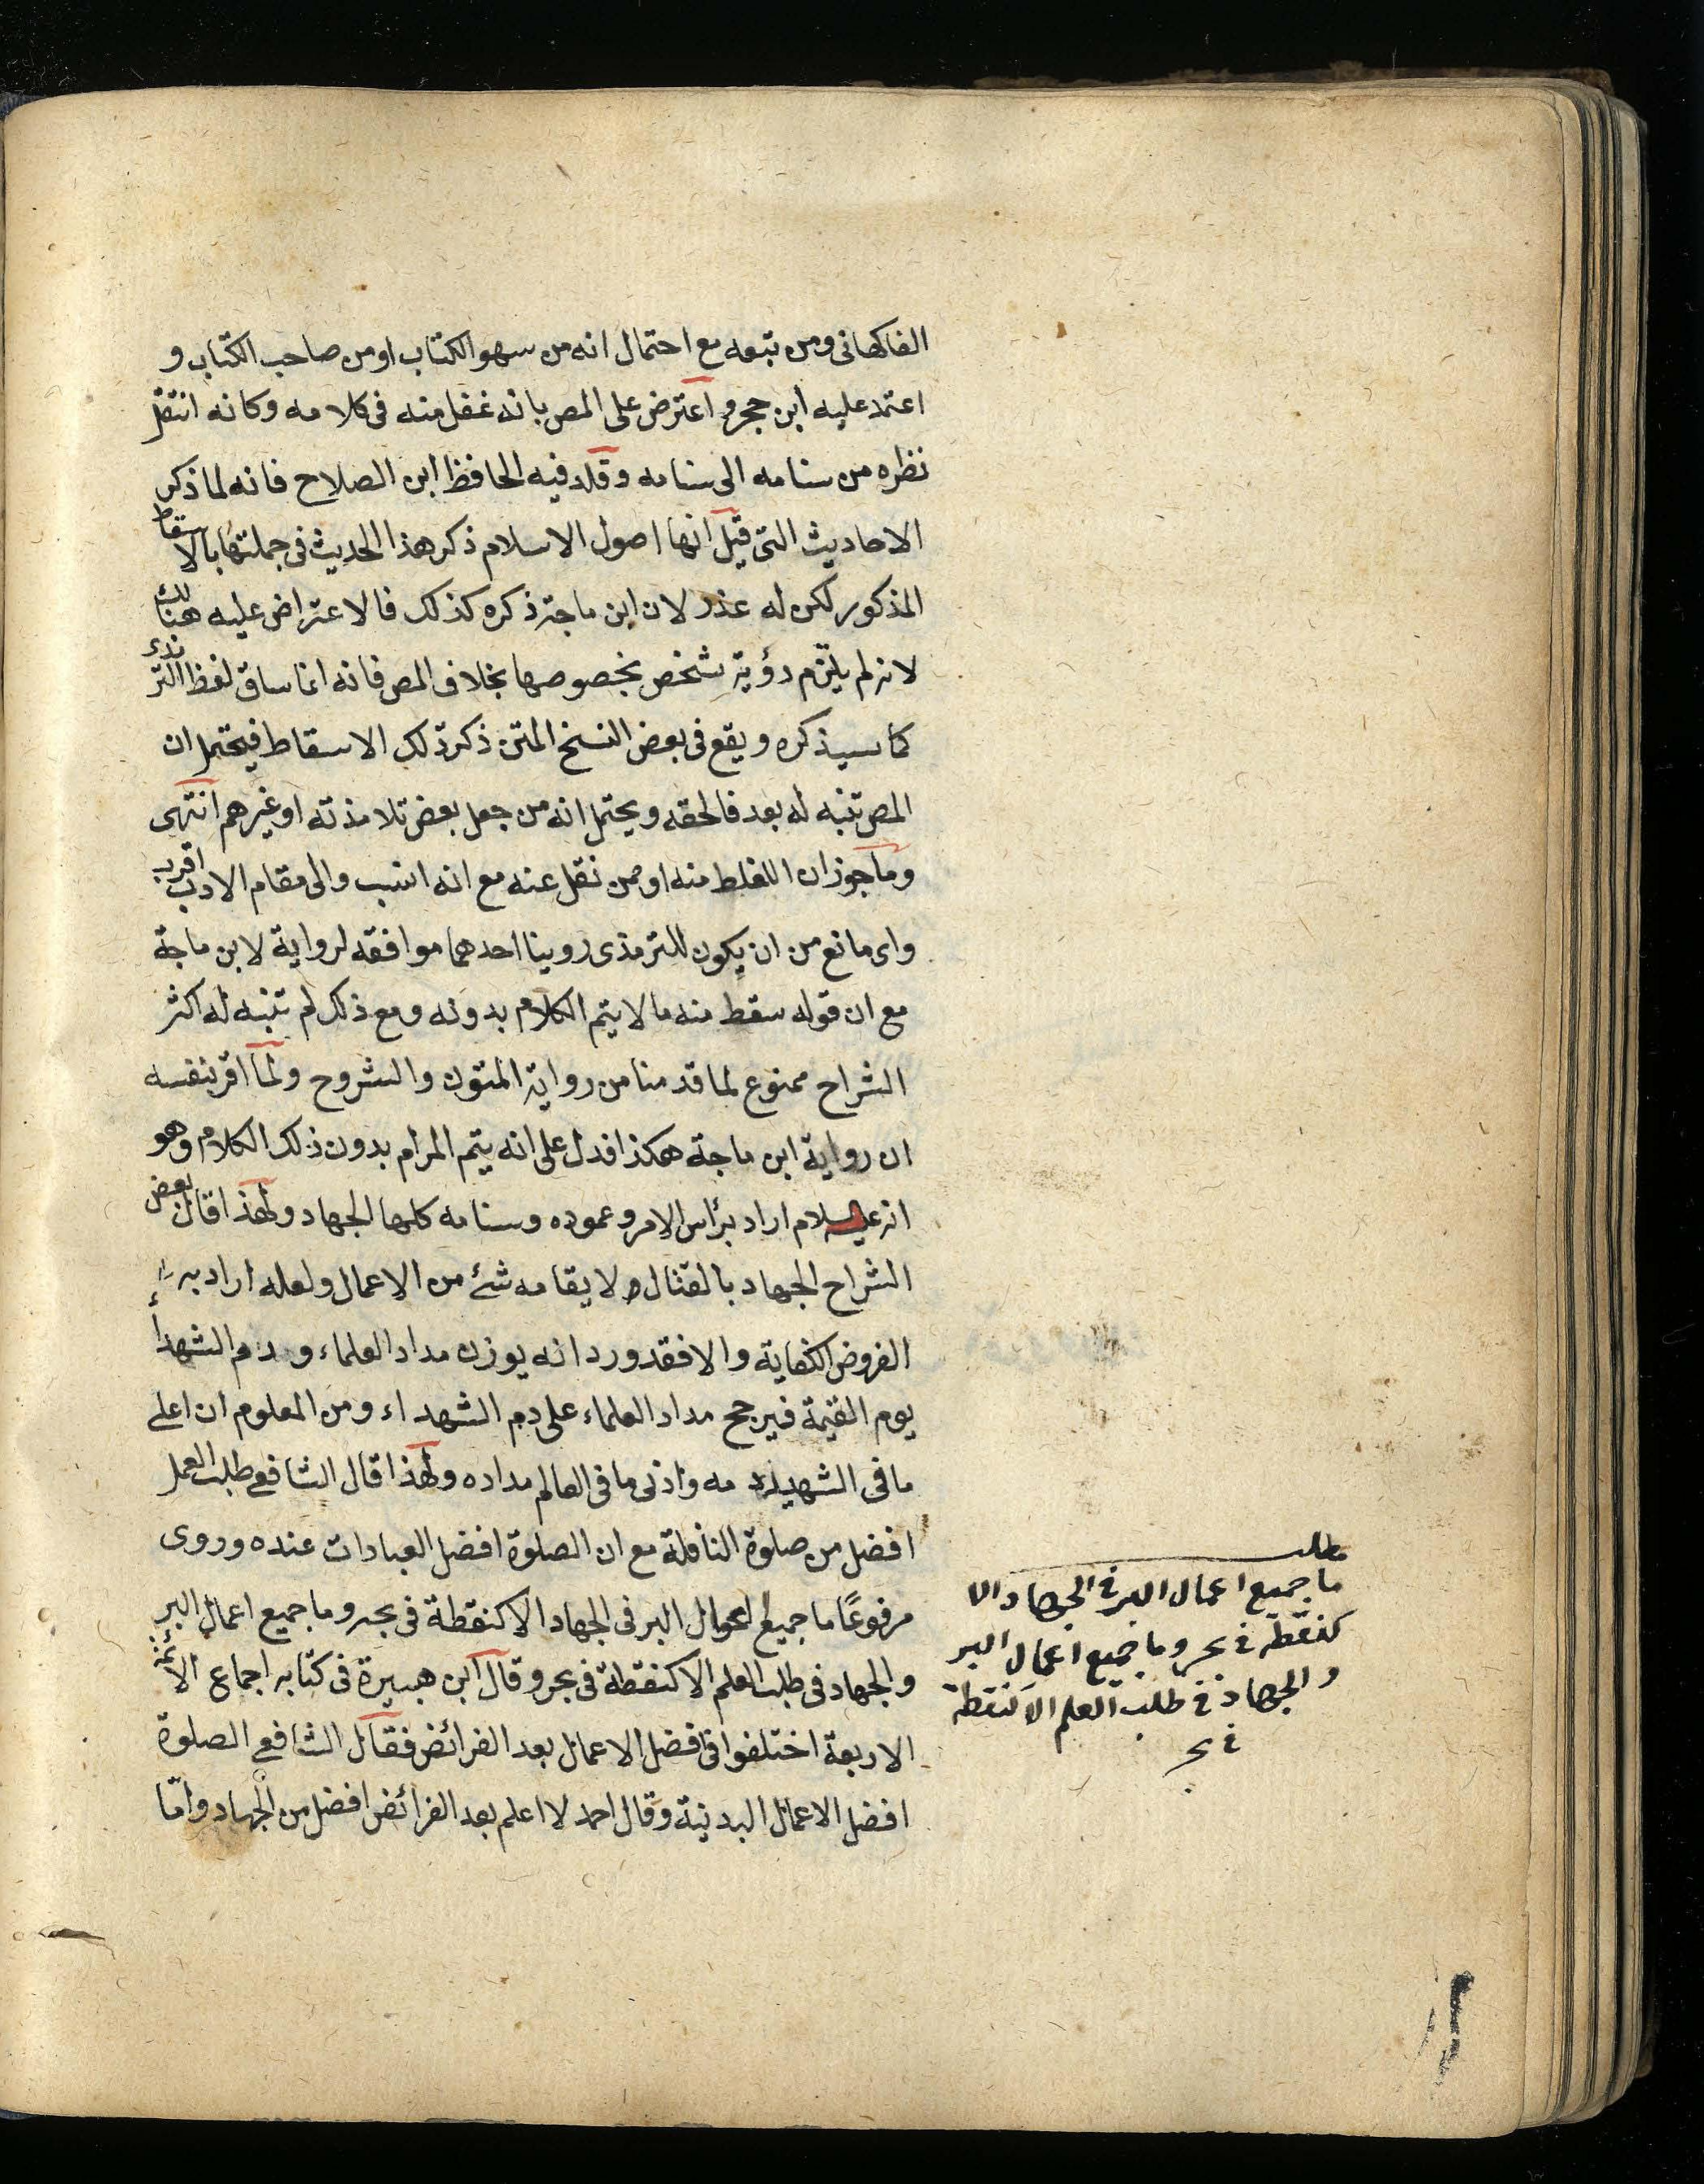 الفاكهانى ومن تبعه مع احتمال انه من سهو الكتاب او من صاحب الكتاب و
اعتمد عليه ابن حجر واعترض على المص بانه غفل منه فى كلامه وكانه انتقل
نظره من سنامه الى سنامه وقلد فيه الحافظ ابن الصلاح فانه لما ذكر
الاحاديث التى قيل انها اصول الاسلام ذكر هذا الحديث فى جملتها بالاسقاط
المذكور لكن له عذر لان ابن ماجة ذكره كذلك فالاعتراض عليه هنالك
لانه لم يلتزم رؤية شخص بخصوصها بخلاف المص فانه انما ساق لفظ الترمذى
كما سيذكره ويقع فى بعض النسخ المتن ذكر ذلك الاسقاط فيحتمل ان
المص تنبه له بعد فالحقه ويحتمل انه من جعل بعض تلامذته او غيرهم انتهى
وما جوز ان الغلط منه او ممن نقل عنه مع انه انسب والى مقام الادب اقرب
واى مانع من ان يكون للترمذى روينا احدهما موافقه لرواية لابن ماجة
مع ان قوله سقط منه ما لا يتم الكلام بدونه ومع ذلك لم تنبه له اكثر
الشراح ممنوع لما قدمنا من رواية المتون والشروح ولما اقر بنفسه
ان رواية ابن ماجة هكذا فدل على انه يتم المرام بدون ذلك الكلام وهو
انه عليه السلام اراد برأس الامر وعموده وسنامه كلها الجهاد ولهذا قال بعض
الشراح الجهاد بالقتال ولا يقامه شئ من الاعمال ولعله اراد به
الفروض الكفاية والا فقد ورد انه يوزن مداد العلماء ودم الشهدأ
يوم القيمة فيرجح مداد العلماء على دم الشهداء ومن المعلوم ان اعلى
ما فى الشهيد دمه وادنى ما فى العالم مداده ولهذا قال الشافعى طلب العلم
افضل من صلوة النافلة مع ان الصلوة افضل العبادات عنده وروى
مرفوعًا ما جميع اعمال البر فى الجهاد الا كنقطة فى بحر وما جميع اعمال البر
والجهاد فى طلب العلم الا كنقطة فى بحر وقال ابن هبيرة فى كتابه اجماع الائمة
الاربعة اختلفوا فى افضل الاعمال بعد الفرائض فقال الشافعى الصلوة
افضل الاعمال البدنية وقال احمد لا اعلم بعد الفرائض افضل من الجهاد وامّا
مطلب
ما جميع اعمال البر فى الجهاد الا
كنقطة فى بحر وما جميع اعمال البر
والجهاد فى طلب العلم الا كنقطة
فى بحر